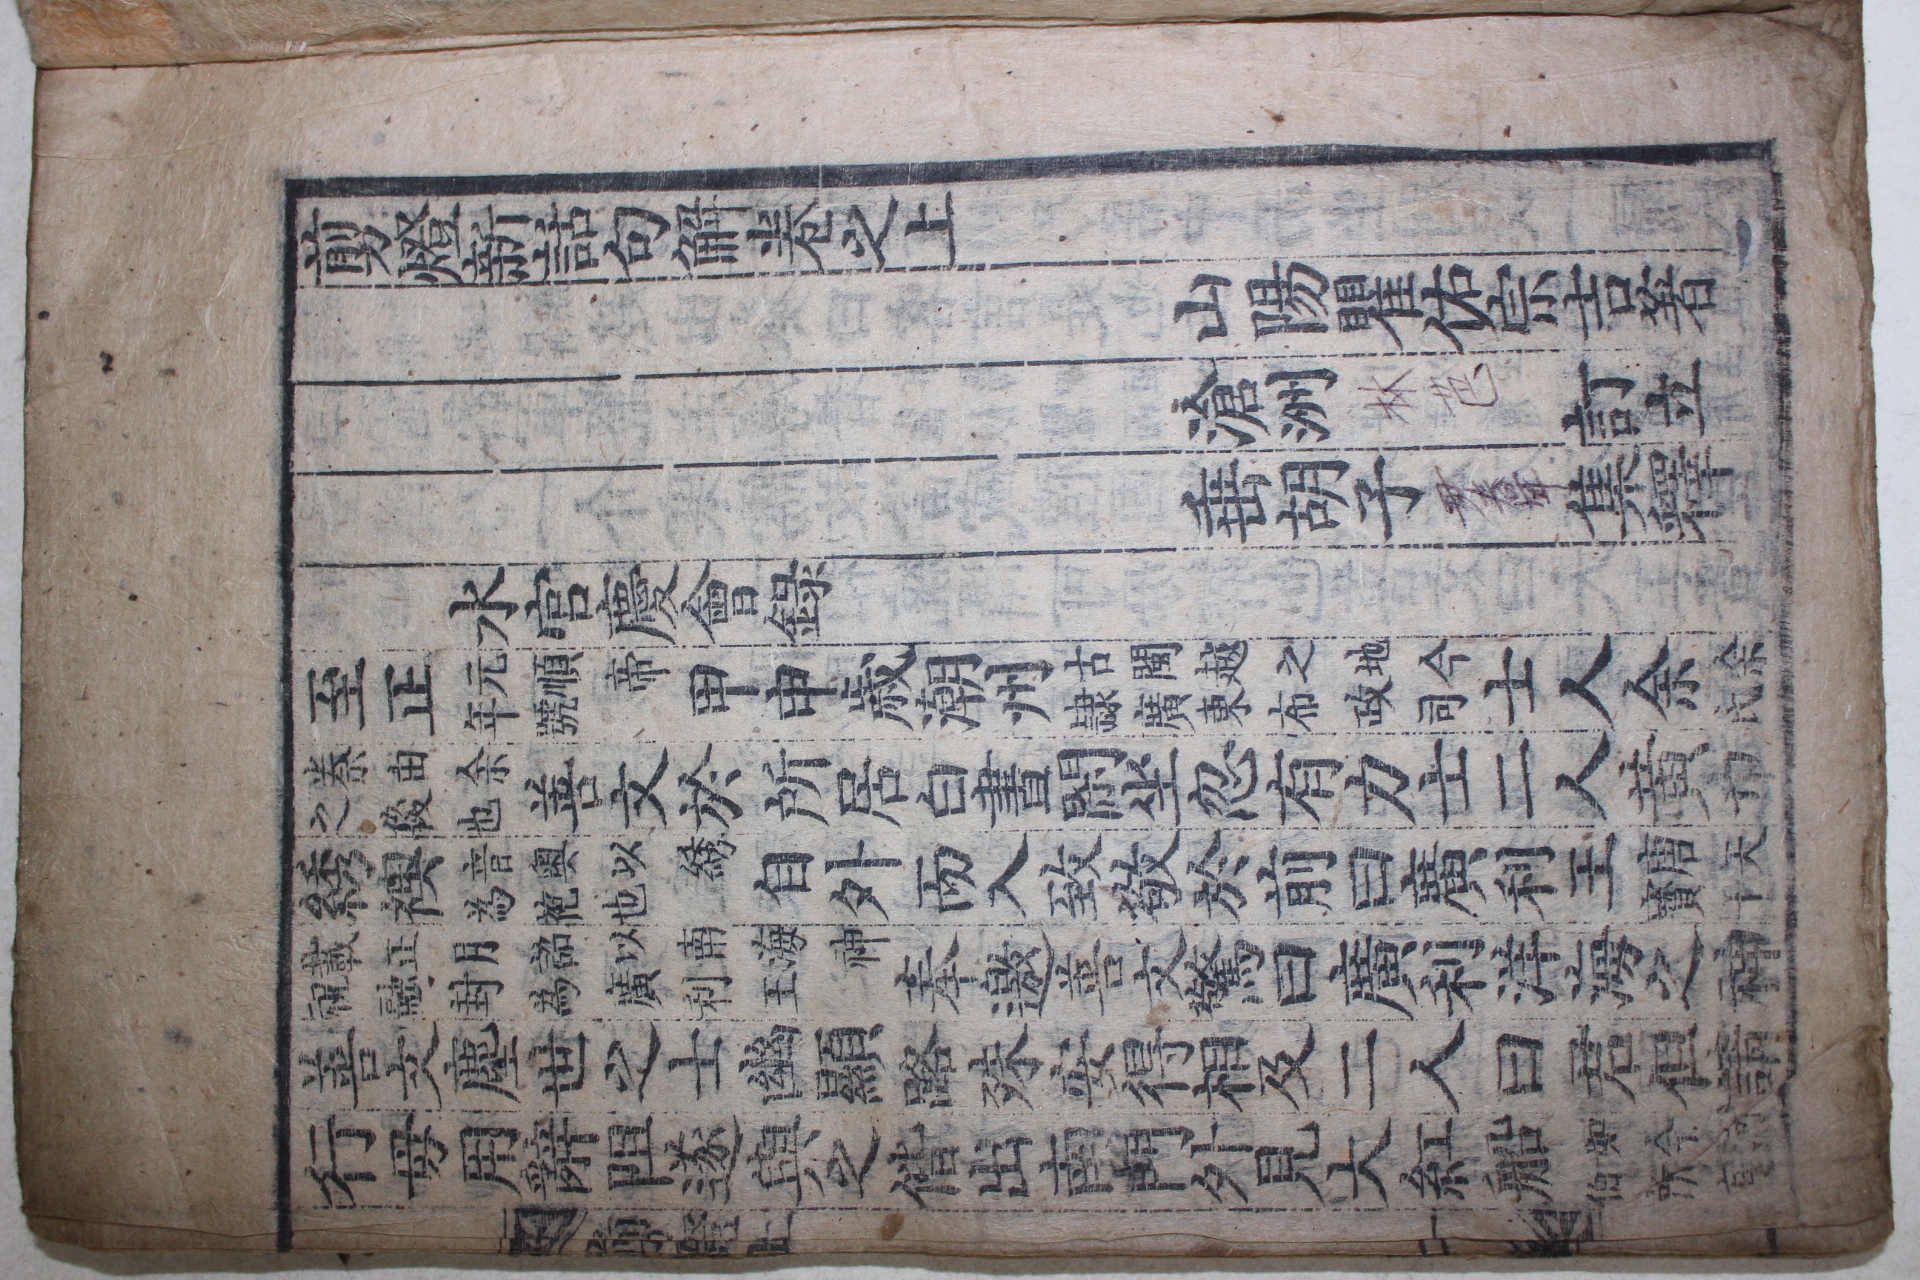 剪燈新話句解卷之上
山陽瞿佑宗吉著
滄洲 林芑 訂立
垂胡子 尹春年 集釋
水宮慶會錄
至正元順帝年號甲申歲潮州古閩越之地今隷廣東布政司士人余余氏
秦由余之後也善文於所居白晝閒坐忽有力士二人黃巾
綉襖音奧以綉為袍也自外而入致敬於前曰廣利王唐天寶十
載正月詔以南海神祝融封為廣利王奉邀善文驚曰廣利洋海之神
善文塵世之士幽顯路殊安得相及二人曰君但請
行毋用辭阻遂與之偕出南門外見大紅船